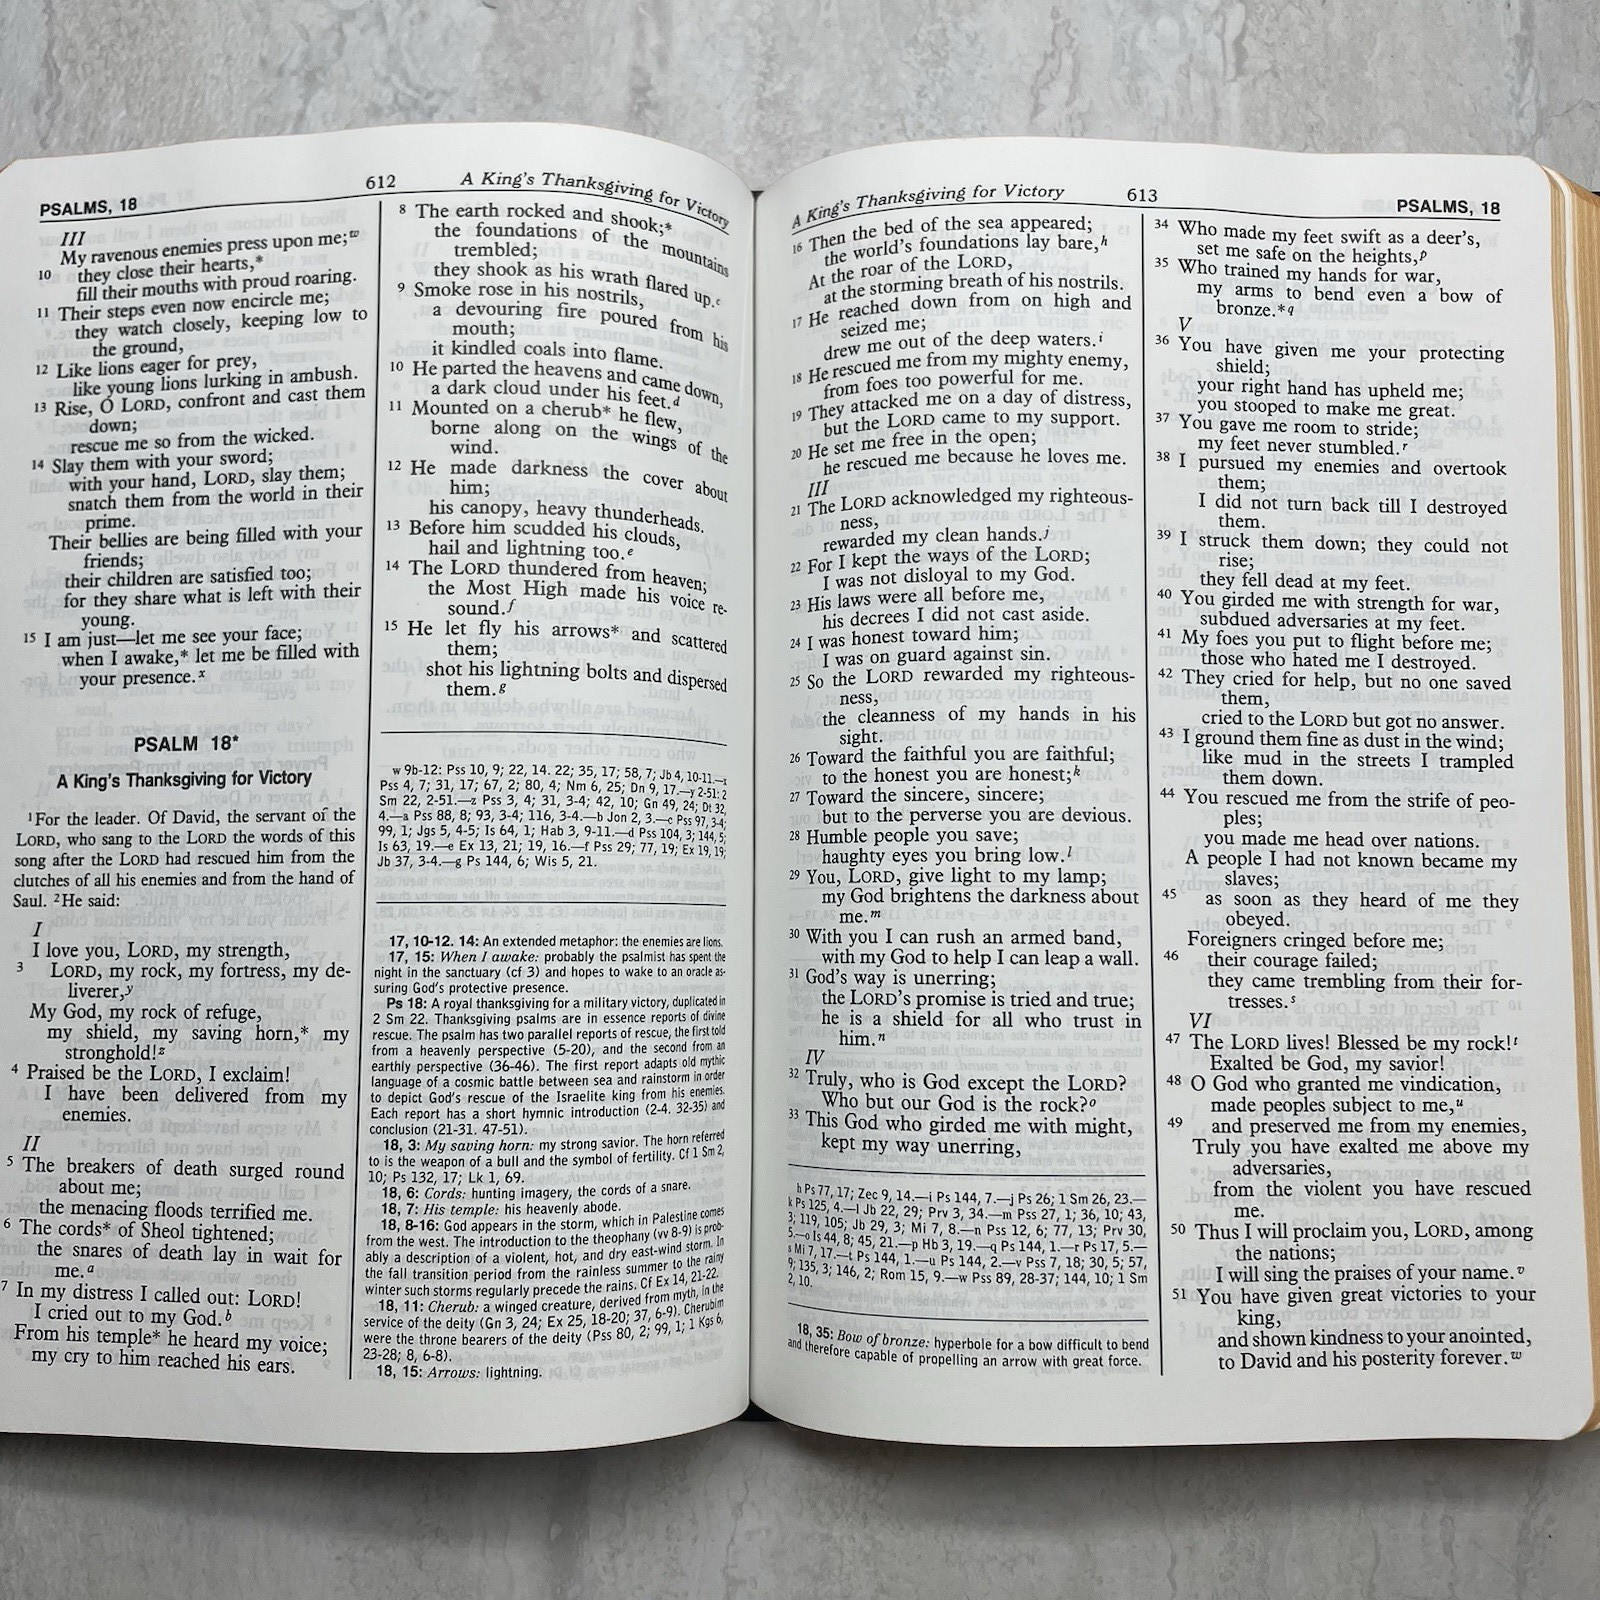 PSALMS, 18
612
A King's Thanksgiving for Victory
III
My ravenous enemies press upon me;w
10 they close their hearts,*
fill their mouths with proud roaring.
11 Their steps even now encircle me;
they watch closely, keeping low to
the ground,
12 Like lions eager for prey,
like young lions lurking in ambush.
13 Rise, O LORD, confront and cast them
down;
rescue me so from the wicked.
14 Slay them with your sword;
with your hand, LORD, slay them;
snatch them from the world in their
prime.
Their bellies are being filled with your
friends;
their children are satisfied too;
for they share what is left with their
young.
15 I am just—let me see your face;
when I awake,* let me be filled with
your presence.x
PSALM 18*
A King's Thanksgiving for Victory
1For the leader. Of David, the servant of the
LORD, who sang to the LORD the words of this
song after the LORD had rescued him from the
clutches of all his enemies and from the hand of
Saul. 2He said:
I
I love you, LORD, my strength,
3 LORD, my rock, my fortress, my de-
liverer,y
My God, my rock of refuge,
my shield, my saving horn,* my
stronghold!z
4 Praised be the LORD, I exclaim!
I have been delivered from my
enemies.
II
5 The breakers of death surged round
about me;
the menacing floods terrified me.
6 The cords* of Sheol tightened;
the snares of death lay in wait for
me.a
7 In my distress I called out: LORD!
I cried out to my God.b
From his temple* he heard my voice;
my cry to him reached his ears.
8 The earth rocked and shook;*
the foundations of the mountains
trembled;
they shook as his wrath flared up.c
9 Smoke rose in his nostrils,
a devouring fire poured from his
mouth;
it kindled coals into flame.
10 He parted the heavens and came down,
a dark cloud under his feet.d
11 Mounted on a cherub* he flew,
borne along on the wings of the
wind.
12 He made darkness the cover about
him;
his canopy, heavy thunderheads.
13 Before him scudded his clouds,
hail and lightning too.e
14 The LORD thundered from heaven;
the Most High made his voice re-
sound.f
15 He let fly his arrows* and scattered
them;
shot his lightning bolts and dispersed
them.g
w 9b-12: Pss 10, 9; 22, 14. 22; 35, 17; 58, 7; Jb 4, 10-11.—x
Pss 4, 7; 31, 17; 67, 2; 80, 4; Nm 6, 25; Dn 9, 17.—y 2-51: 2
Sm 22, 2-51.—z Pss 3, 4; 31, 3-4; 42, 10; Gn 49, 24; Dt 32,
4.—a Pss 88, 8; 93, 3-4; 116, 3-4.—b Jon 2, 3.—c Pss 97, 3-4;
99, 1; Jgs 5, 4-5; Is 64, 1; Hab 3, 9-11.—d Pss 104, 3; 144, 5;
Is 63, 19.—e Ex 13, 21; 19, 16.—f Pss 29; 77, 19; Ex 19, 19;
Jb 37, 3-4.—g Ps 144, 6; Wis 5, 21.
17, 10-12. 14: An extended metaphor: the enemies are lions.
17, 15: When I awake: probably the psalmist has spent the
night in the sanctuary (cf 3) and hopes to wake to an oracle as-
suring God's protective presence.
Ps 18: A royal thanksgiving for a military victory, duplicated in
2 Sm 22. Thanksgiving psalms are in essence reports of divine
rescue. The psalm has two parallel reports of rescue, the first told
from a heavenly perspective (5-20), and the second from an
earthly perspective (36-46). The first report adapts old mythic
language of a cosmic battle between sea and rainstorm in order
to depict God's rescue of the Israelite king from his enemies.
Each report has a short hymnic introduction (2-4. 32-35) and
conclusion (21-31. 47-51).
18, 3: My saving horn: my strong savior. The horn referred
to is the weapon of a bull and the symbol of fertility. Cf 1 Sm 2,
10; Ps 132, 17; Lk 1, 69.
18, 6: Cords: hunting imagery, the cords of a snare.
18, 7: His temple: his heavenly abode.
18, 8-16: God appears in the storm, which in Palestine comes
from the west. The introduction to the theophany (vv 8-9) is prob-
ably a description of a violent, hot, and dry east-wind storm. In
the fall transition period from the rainless summer to the rainy
winter such storms regularly precede the rains. Cf Ex 14, 21-22.
18, 11: Cherub: a winged creature, derived from myth, in the
service of the deity (Gn 3, 24; Ex 25, 18-20; 37, 6-9). Cherubim
were the throne bearers of the deity (Pss 80, 2; 99, 1; 1 Kgs 6,
23-28; 8, 6-8).
18, 15: Arrows: lightning.
A King's Thanksgiving for Victory
613
PSALMS, 18
16 Then the bed of the sea appeared;
the world's foundations lay bare,h
At the roar of the LORD,
at the storming breath of his nostrils.
17 He reached down from on high and
seized me;
drew me out of the deep waters.i
18 He rescued me from my mighty enemy,
from foes too powerful for me.
19 They attacked me on a day of distress,
but the LORD came to my support.
20 He set me free in the open;
he rescued me because he loves me.
III
21 The LORD acknowledged my righteous-
ness,
rewarded my clean hands.j
22 For I kept the ways of the LORD;
I was not disloyal to my God.
23 His laws were all before me,
his decrees I did not cast aside.
24 I was honest toward him;
I was on guard against sin.
25 So the LORD rewarded my righteous-
ness,
the cleanness of my hands in his
sight.
26 Toward the faithful you are faithful;
to the honest you are honest;k
27 Toward the sincere, sincere;
but to the perverse you are devious.
28 Humble people you save;
haughty eyes you bring low.l
29 You, LORD, give light to my lamp;
my God brightens the darkness about
me.m
30 With you I can rush an armed band,
with my God to help I can leap a wall.
31 God's way is unerring;
the LORD's promise is tried and true;
he is a shield for all who trust in
him.n
IV
32 Truly, who is God except the LORD?
Who but our God is the rock?o
33 This God who girded me with might,
kept my way unerring,
h Ps 77, 17; Zec 9, 14.—i Ps 144, 7.—j Ps 26; 1 Sm 26, 23.—
k Ps 125, 4.—l Jb 22, 29; Prv 3, 34.—m Pss 27, 1; 36, 10; 43,
3; 119, 105; Jb 29, 3; Mi 7, 8.—n Pss 12, 6; 77, 13; Prv 30,
5.—o Is 44, 8; 45, 21.—p Hb 3, 19.—q Ps 144, 1.—r Ps 17, 5.—
s Mi 7, 17.—t Ps 144, 1.—u Ps 144, 2.—v Pss 7, 18; 30, 5; 57,
9; 135, 3; 146, 2; Rom 15, 9.—w Pss 89, 28-37; 144, 10; 1 Sm
2, 10.
18, 35: Bow of bronze: hyperbole for a bow difficult to bend
and therefore capable of propelling an arrow with great force.
34 Who made my feet swift as a deer's,
set me safe on the heights,p
35 Who trained my hands for war,
my arms to bend even a bow of
bronze.*q
V
36 You have given me your protecting
shield;
your right hand has upheld me;
you stooped to make me great.
37 You gave me room to stride;
my feet never stumbled.r
38 I pursued my enemies and overtook
them;
I did not turn back till I destroyed
them.
39 I struck them down; they could not
rise;
they fell dead at my feet.
40 You girded me with strength for war,
subdued adversaries at my feet.
41 My foes you put to flight before me;
those who hated me I destroyed.
42 They cried for help, but no one saved
them,
cried to the LORD but got no answer.
43 I ground them fine as dust in the wind;
like mud in the streets I trampled
them down.
44 You rescued me from the strife of peo-
ples;
you made me head over nations.
A people I had not known became my
slaves;
45 as soon as they heard of me they
obeyed.
Foreigners cringed before me;
46 their courage failed;
they came trembling from their for-
tresses.s
VI
47 The LORD lives! Blessed be my rock!t
Exalted be God, my savior!
48 O God who granted me vindication,
made peoples subject to me,u
49 and preserved me from my enemies,
Truly you have exalted me above my
adversaries,
from the violent you have rescued
me.
50 Thus I will proclaim you, LORD, among
the nations;
I will sing the praises of your name.v
51 You have given great victories to your
king,
and shown kindness to your anointed,
to David and his posterity forever.w